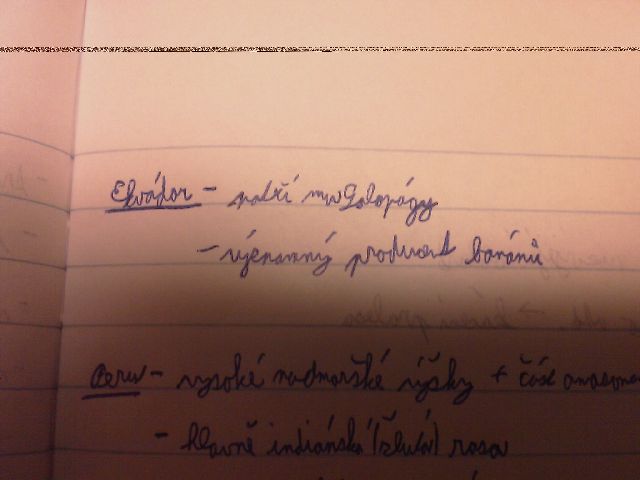 Ekvádor - patří mu Galapágy
- významný producent banánů
Peru - vysoké nadmořské výšky + část amazone
- hlavně indiánská (žlutá) rasa